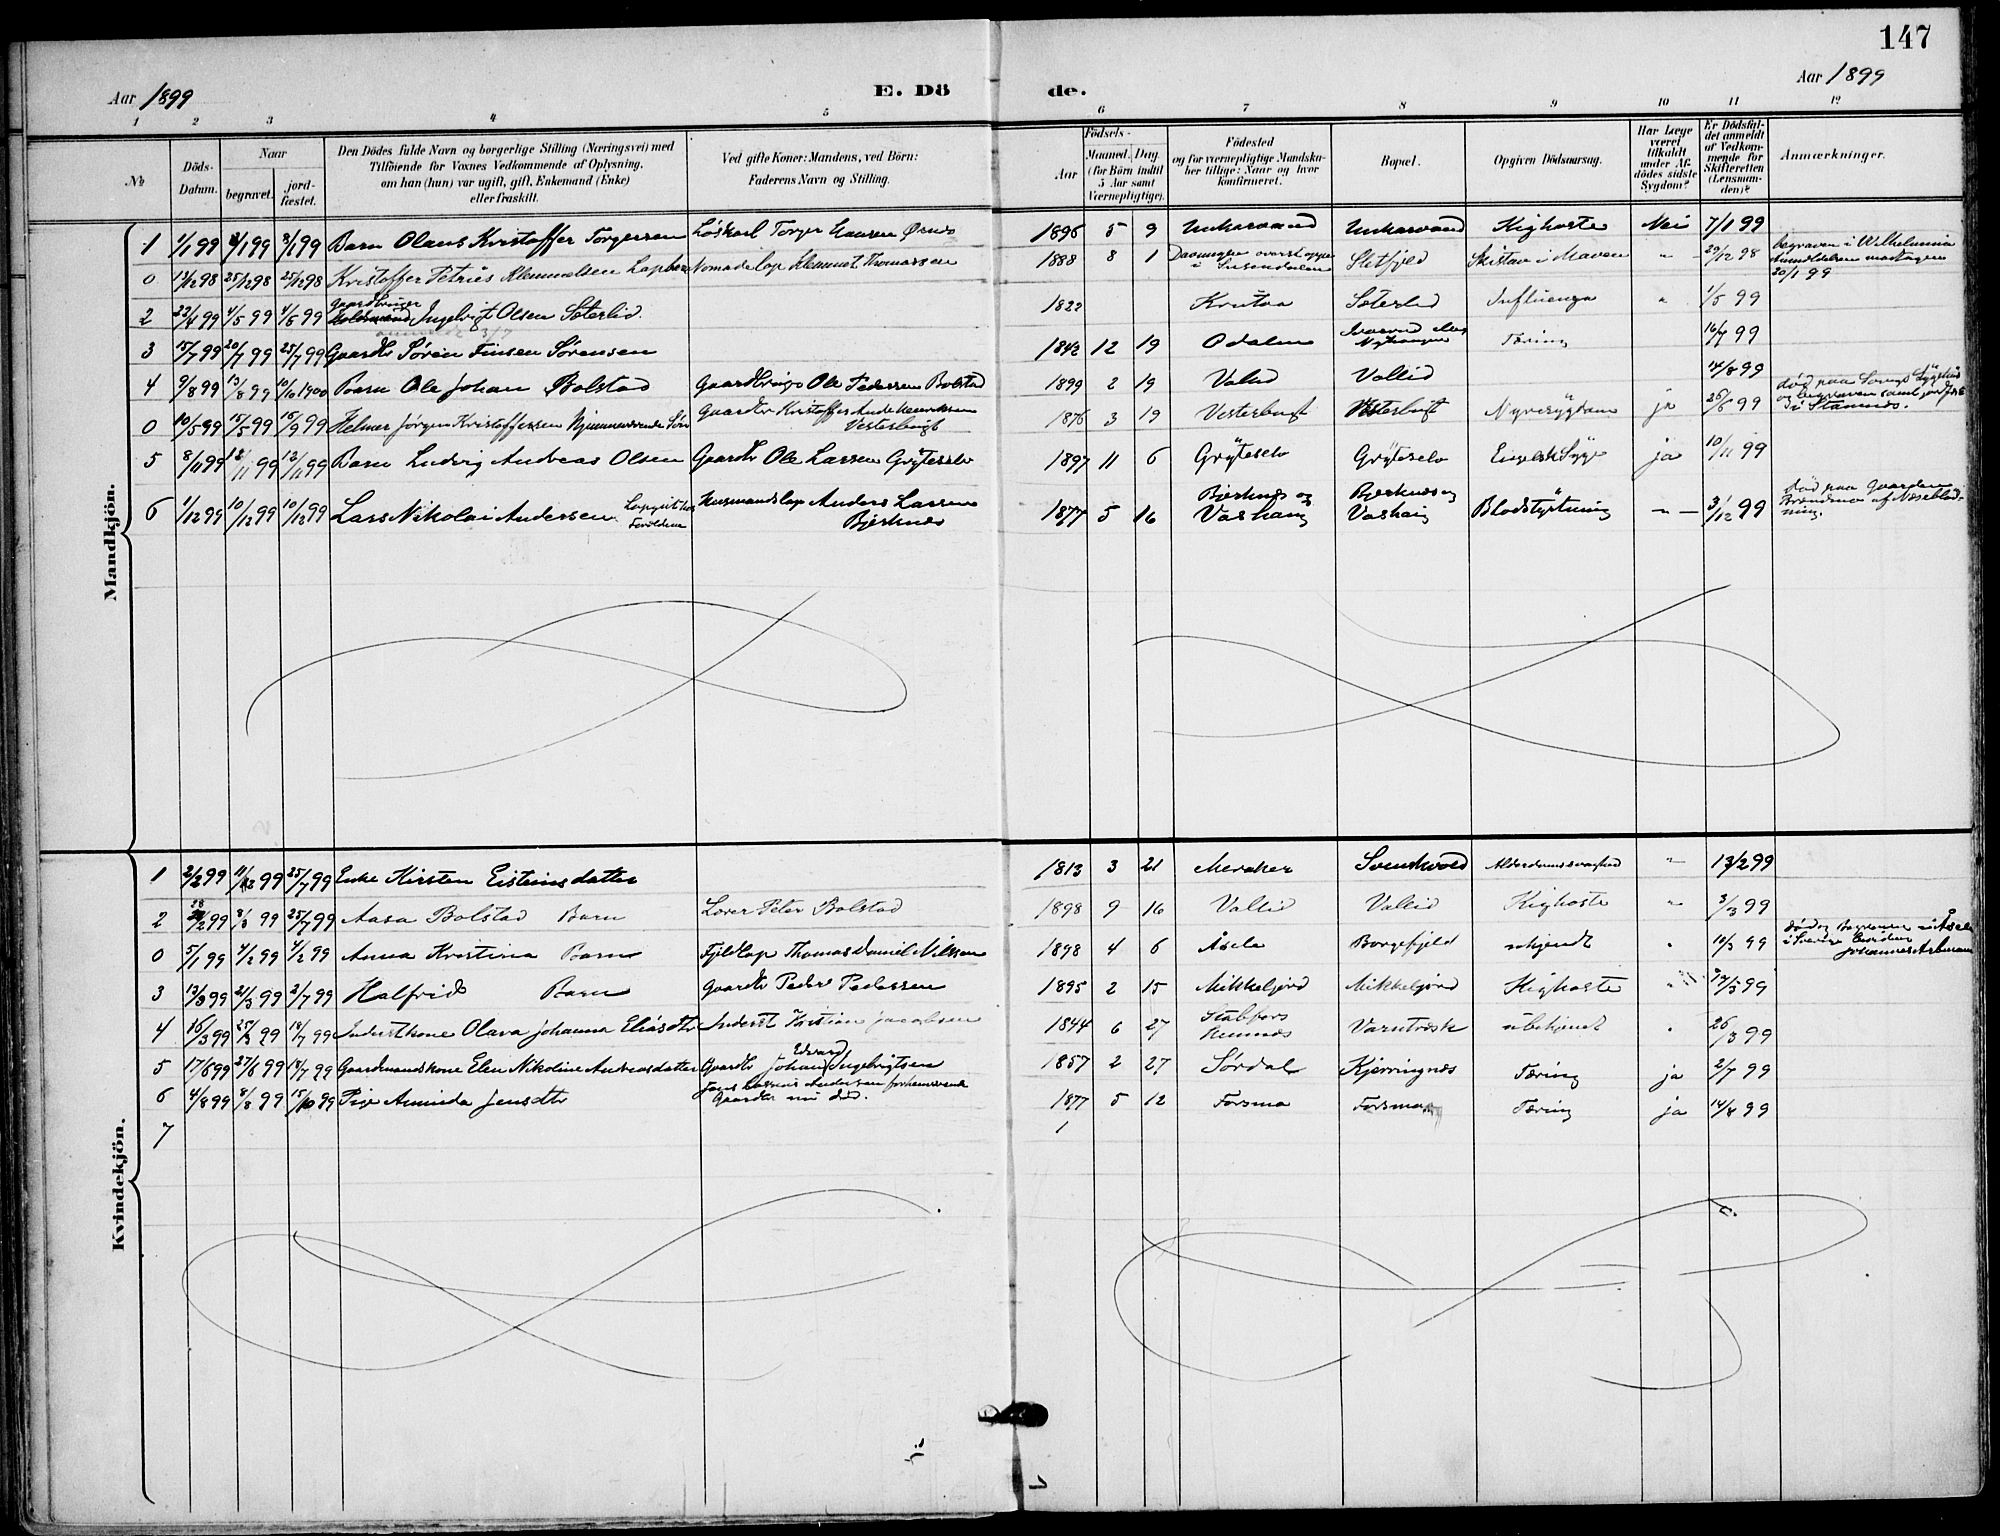 147
Aar 1899 E. Dö de. Aar 1899
1 2 3 4 5 6 7 8 9 10 11 12
№
Döds-Datum.
Naar
begravet.
jord-fæstet.
Den Dödes fulde Navn og borgerlige Stilling (Næringsvei) med
Tilföiende for Voxnes Vedkommende af Oplysning,
om han (hun) var ugift, gift, Enkemand (Enke)
eller fraskilt.
Ved gifte Koner: Mandens, ved Börn:
Faderens Navn og Stilling.
Födsels-
Aar
Maaned. Dag.
(for Börn indtil
5 Aar samt
Værnepligtige).
Födested
og for værnepligtige Mandska-
ber tillige: Naar og hvor
konfirmeret.
Bopæl.
Opgiven Dödsaarsag.
Har Læge
været
tilkaldt
under Af-
dödes sidste
Sygdom?
Er Dödsfal-
det anmeldt
af Vedkom-
mende for
Skifteretten
(Lensman-
den)?
Anmærkninger.
Mandkjön.
1 1/1 99 8/1 99 8/1 99 Barn Olaus Kristoffer Torgersen Löskarl Torger Hansen Ørnes 1896 5 9 Unkarvand Unkarvand Kighoste Nei 7/1 99
0 12/12 98 25/12 98 25/12 98 Kristoffer Petrus Klemmetsen Nomadelap Klemmet Thomassen 1888 8 1 Susendalen Sletfjeld i Maven " 29/12 98 begraven i Wilhelmina
Anmeldelsen modtagen
20/1 99
2 22/4 99 4/5 99 4/5 99 Gaardbruger Ingebrigt Olsen Sæterlid. 1822 Krutaa Sæterlid Influenza " 1/5 99
3 15/7 99 20/7 99 25/7 99 Gaardbr Sören Finsen Sörensen 1842 12 19 Odalen Tæring 16/7 99
4 9/8 99 13/8 99 10/6 1900 Barn Ole Johan Bolstad Gaardbruger Ole Pedersen Bolstad 1899 2 19 Valed Vallid 14/8 99
0 10/5 99 15/5 99 15/9 99 Helmer Jørgen Kristoffersen Hjemmeværende Søn Gaardbr Kristoffer
Vesterbugt 1876 3 19 Vesterbugt Vesterbugt Nyresygdom ja 25/6 99 död paa Sygehus
og begraven samt jordf
i Stamnes.
5 8/11 99 12/11 99 12/11 99 Barn Ludvig Andreas Olsen Gaardbr Ole Larsen Gryteselv 1897 11 6 Gryteselv Gryteselv Engelsk Syge ja 10/11 99
6 1/12 99 10/12 99 10/12 99 Lars Nikolai Andersen Lapugift hos
Forældrene Husmandslap Anders Larsen
Bjerknes 1877 5 16 Bjerknes og
Vashaug Bjerknes og
Vashaug Blodstyrtning " 3/12 99 död paa Gaarden
af Næseblöd-
ning.
Kvindekjön.
1 2/2 99 11/2 99 25/7 99 Enke Kirsten Eisteinsdatter 1813 3 21 Meraker Svenskvold Alderdomssvaghed " 13/2 99
2 28/2 99 8/3 99 25/7 99 Aasa Bolstad Barn Lærer Peter Bolstad 1898 9 16 Vallid Vallid Kighoste " 3/3 99
0 5/1 99 4/2 99 4/2 99 Anna Kristina Barn Fjeldlap Thomas Daniel Nilsson 1898 4 6 Åsele Borgefjeld " 10/3 99 död og begraven i Åsele
i Sverige
Johannes
3 13/3 99 21/3 99 2/7 99 Halfrid Barn Gaardbr Peder Pedersen 1895 2 15 Mikkeljord Mikkeljord Kighoste " 17/3 99
4 16/3 99 25/3 99 18/7 99 Inderstkone Olava Johanna Eliasdtr Inderst Kristian Jacobsen 1844 6 27 Stabfors
Remnes Varntræsk ubekjendt " 26/3 99
5 17/6 99 27/6 99 18/7 99 Gaardmandskone Elen Nikoline Andreasdatter Gaardbr Johan Edvard Ingebrigtsen 1857 2 27 Sørdal Kjerringnes Tæring ja 2/7 99
6 4/8 99 8/8 99 15/10 99 Pige Aminda Jensdtr Jens Andersen forhenværende
Gaardbr nu död. 1877 5 12 Forsmo Forsmo Tæring ja 14/8 99
7 1